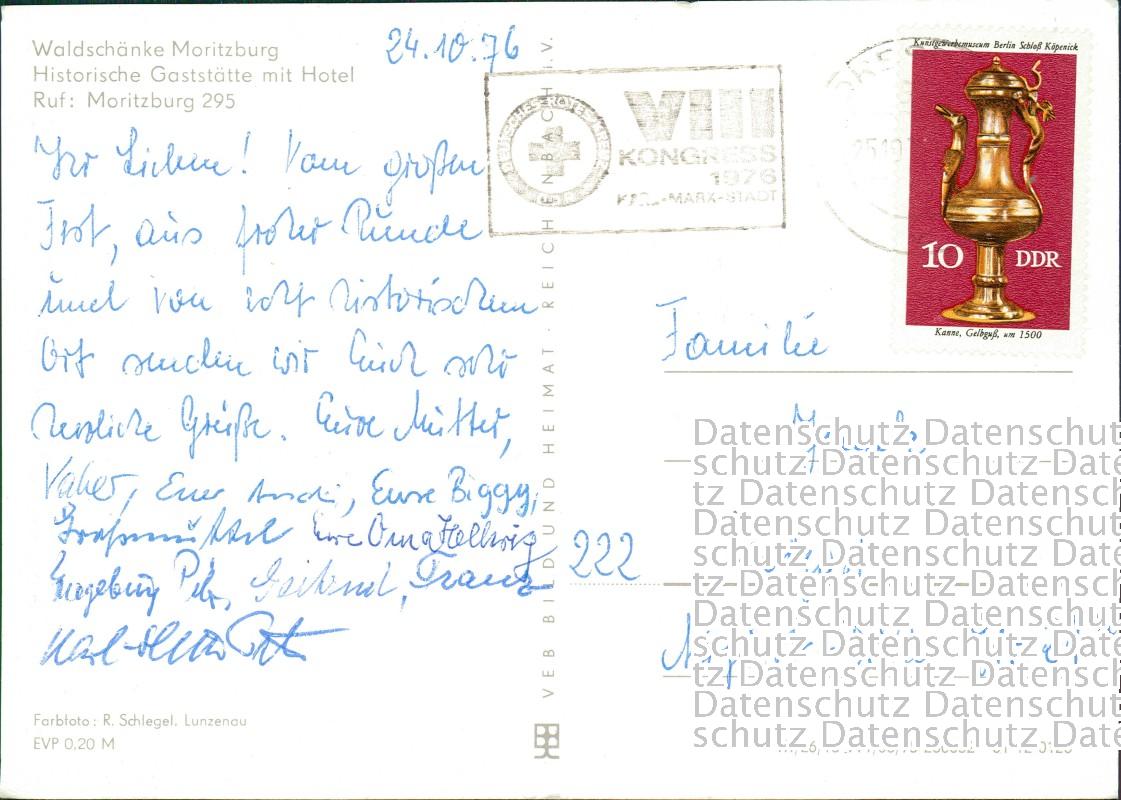 Waldschänke Moritzburg
Historische Gaststätte mit Hotel
Ruf: Moritzburg 295
24.10.76
Ihr Lieben! Vom großen
Fest, aus froher Runde
und von sehr historischem
Ort senden wir Euch sehr
herzliche Grüße. Eure Mutter,
Vater, Eure Biggy,
Großmuttel Eure Oma Hellwig
Ingeburg Gerhard, Franz
Farbfoto: R. Schlegel, Lunzenau
EVP 0,20 M
VEB BILD UND HEIMAT REICHENBACH I. V.
DEUTSCHES ROTES KREUZ
VIII
KONGRESS
1976
KARL-MARX-STADT
Kunstgewerbemuseum Berlin Schloß Köpenick
10 DDR
Kanne, Gelbguß, um 1500
Familie
222
Datenschutz Datenschut
schutz Datenschutz Date
tz Datenschutz Datensch
Datenschutz Datenschut
schutz Datenschutz Date
tz Datenschutz Datensch
Datenschutz Datenschut
schutz Datenschutz Date
tz Datenschutz Datensch
Datenschutz Datenschut
schutz Datenschutz Date